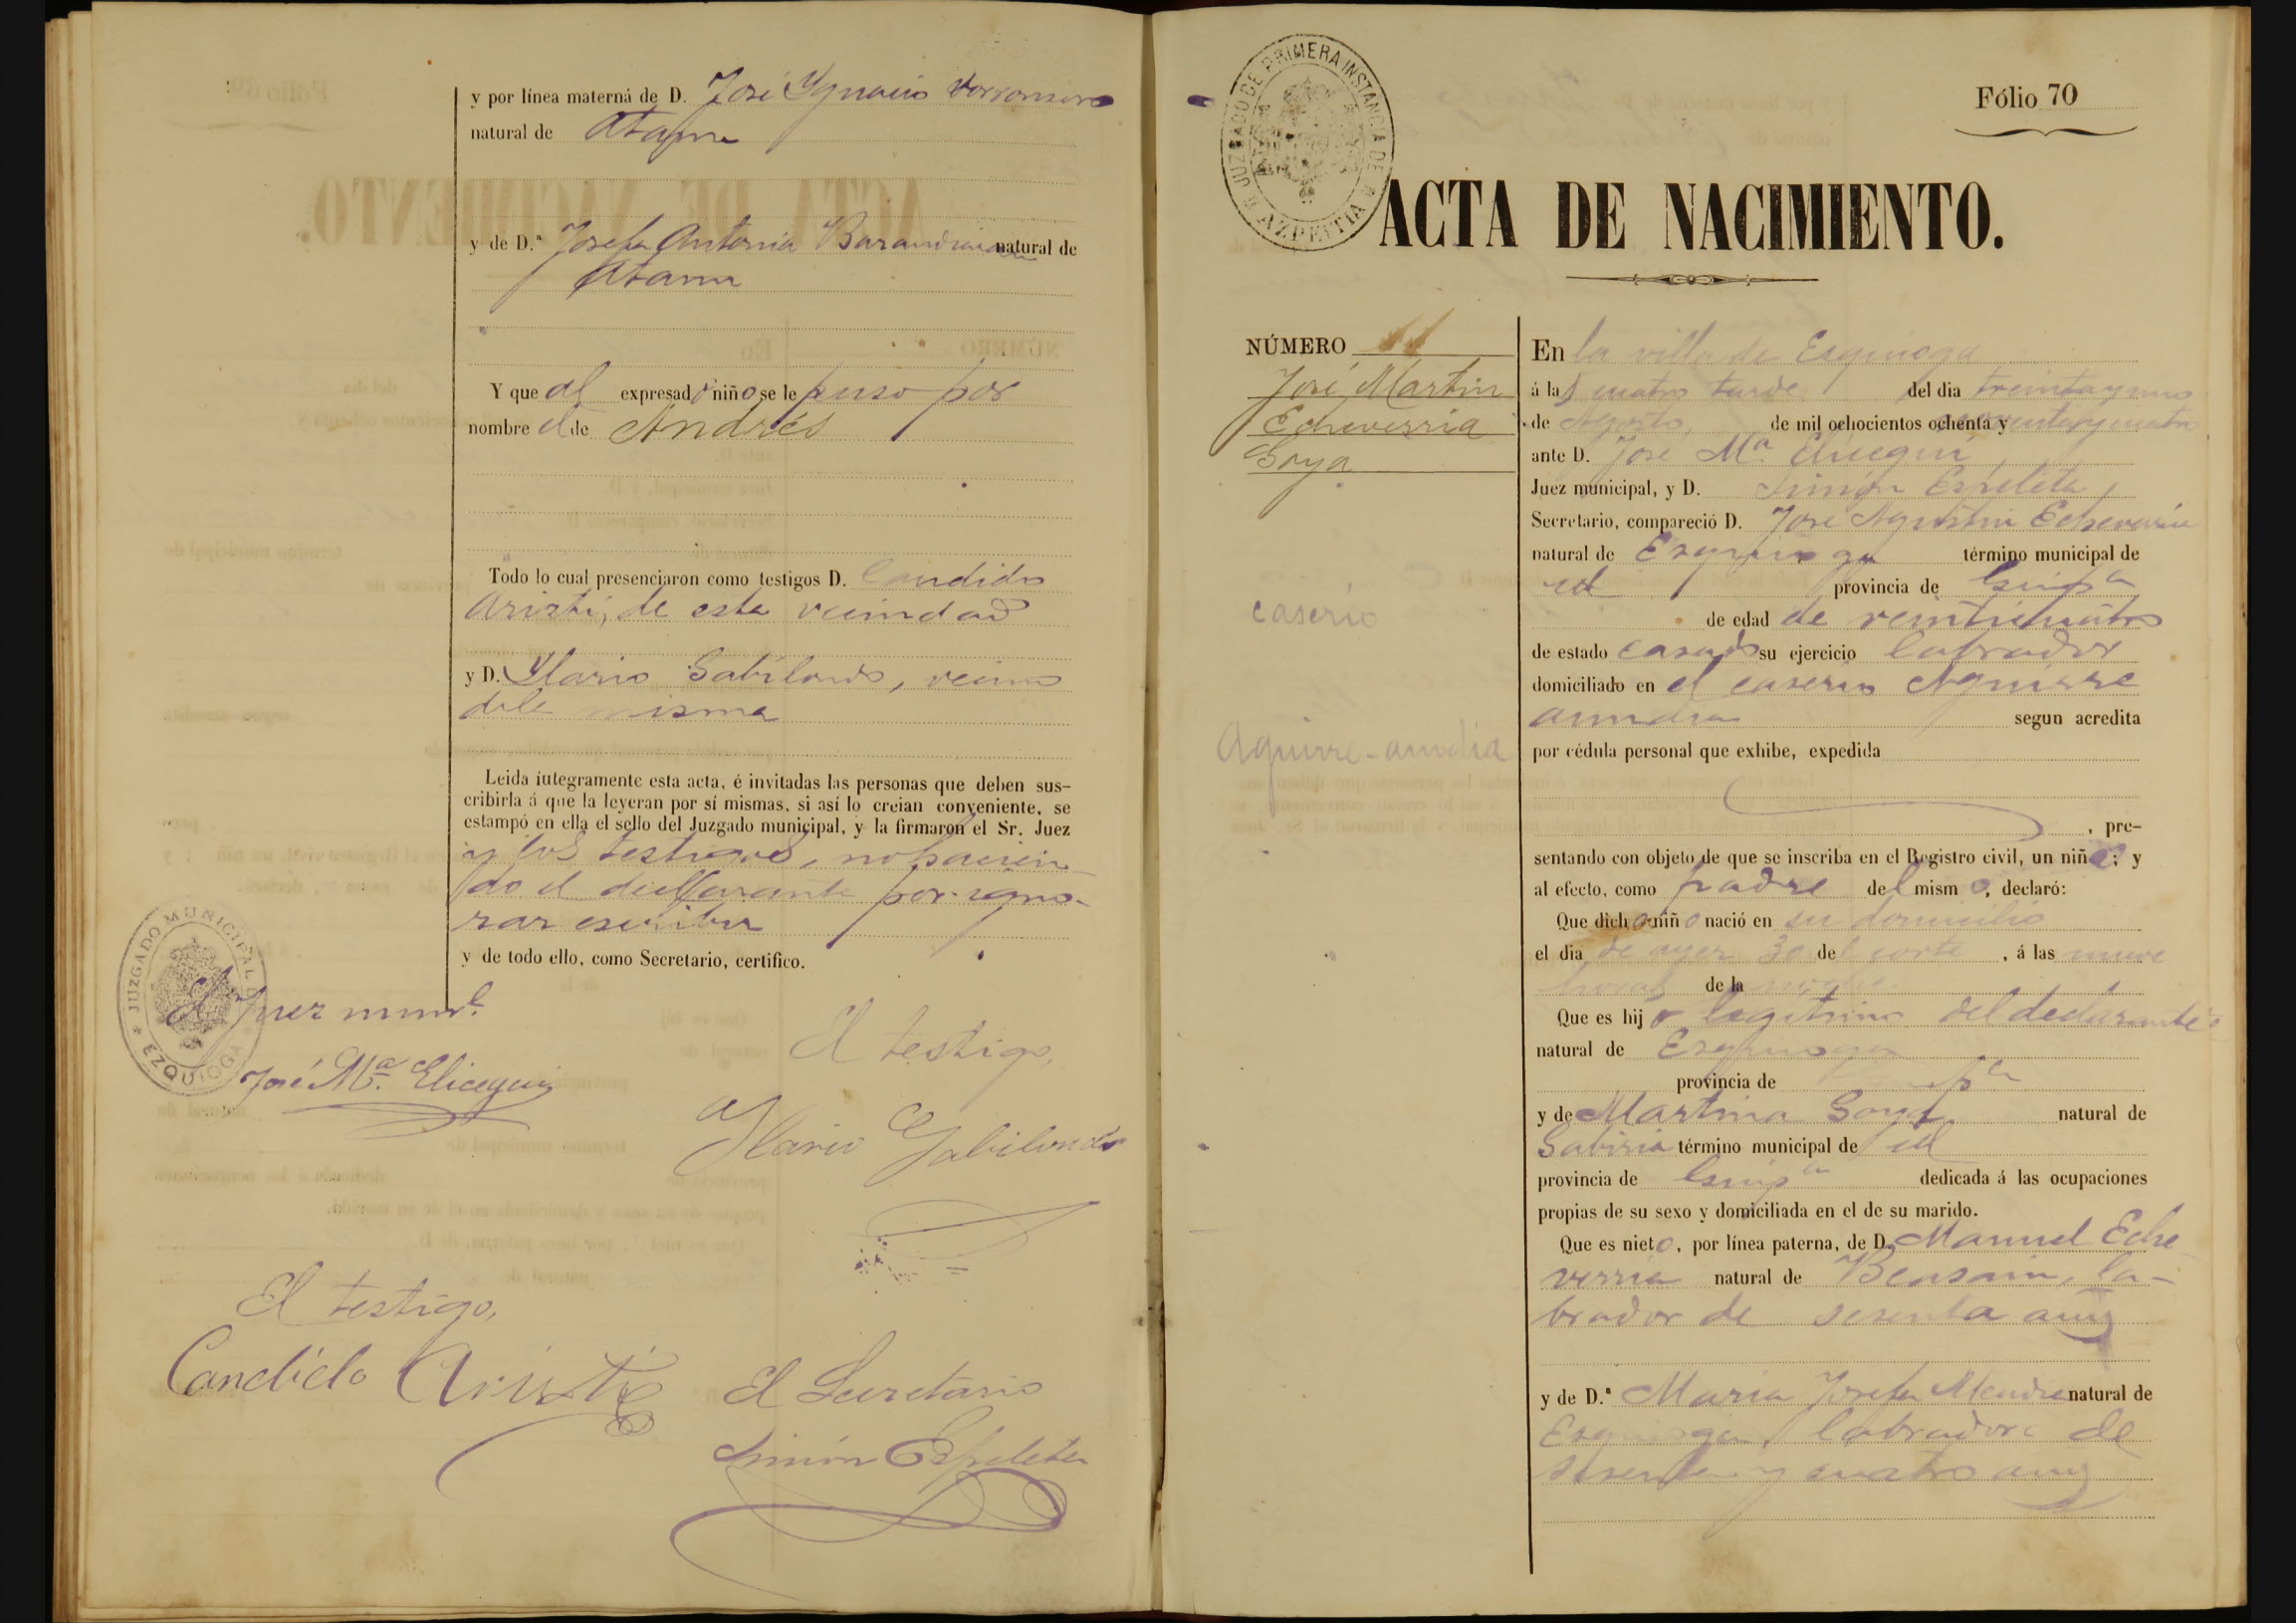 y por línea materna de D. José Ygnacio Dorronsoro
natural de Ataun
y de D.ª Josefa Antonia Barandiaran natural de
Ataun
Y que al expresado niño se le puso por
nombre el de Andrés
Todo lo cual presenciaron como testigos D. Candido
Aristi, de esta vecindad
y D. Ylario Gabilondo, vecino
de la misma
Leida integramente esta acta, é invitadas las personas que deben sus-
cribirla á que la leyeran por sí mismas, si así lo creian conveniente, se
estampó en ella el sello del Juzgado municipal, y la firmaron el Sr. Juez
y los testigos, no hacien
do el declarante por igno-
rar escribir
y de todo ello, como Secretario, certifico.
JUZGADO MUNICIPAL
EZQUIOGA
El Juez munl.
José Mª. Elicegui
El testigo,
Ylario Gabilondo
El testigo,
Candido Aristi
El Secretario
Simón Espeleta
JUZGADO DE PRIMERA INSTANCIA DE
AZPEITIA
Fólio 70
ACTA DE NACIMIENTO.
NÚMERO 11
José Martin
Echeverria
Goya
caserio
Aguirre-aundia
En la villa de Esquioga
á las cuatro tarde del dia treinta y uno
de Agosto, de mil ochocientos ochenta y noventa y cuatro
ante D. José Mª Elicegui
Juez municipal, y D. Simón Espeleta,
Secretario, compareció D. José Agustin Echeverria
natural de Esquioga término municipal de
id provincia de Guipª
de edad de veinticuatro
de estado casado su ejercicio labrador
domiciliado en el caserio Aguirre
aundia segun acredita
por cédula personal que exhibe, expedida
, pre-
sentando con objeto de que se inscriba en el Registro civil, un niño; y
al efecto, como padre del mismo, declaró:
Que dicho niño nació en su domicilio
el dia de ayer 30 del corte, á las nueve
horas de la noche
Que es hijo legitimo del declarante
natural de Esquioga
provincia de Guipª
y de Martina Goya natural de
Gabiria término municipal de id
provincia de Guipª dedicada á las ocupaciones
propias de su sexo y domiciliada en el de su marido.
Que es nieto, por línea paterna, de D. Manuel Eche
verria natural de Beasain, la-
brador de sesenta años
y de D.ª Maria Josefa natural de
Esquioga, labradora de
sesenta y cuatro años